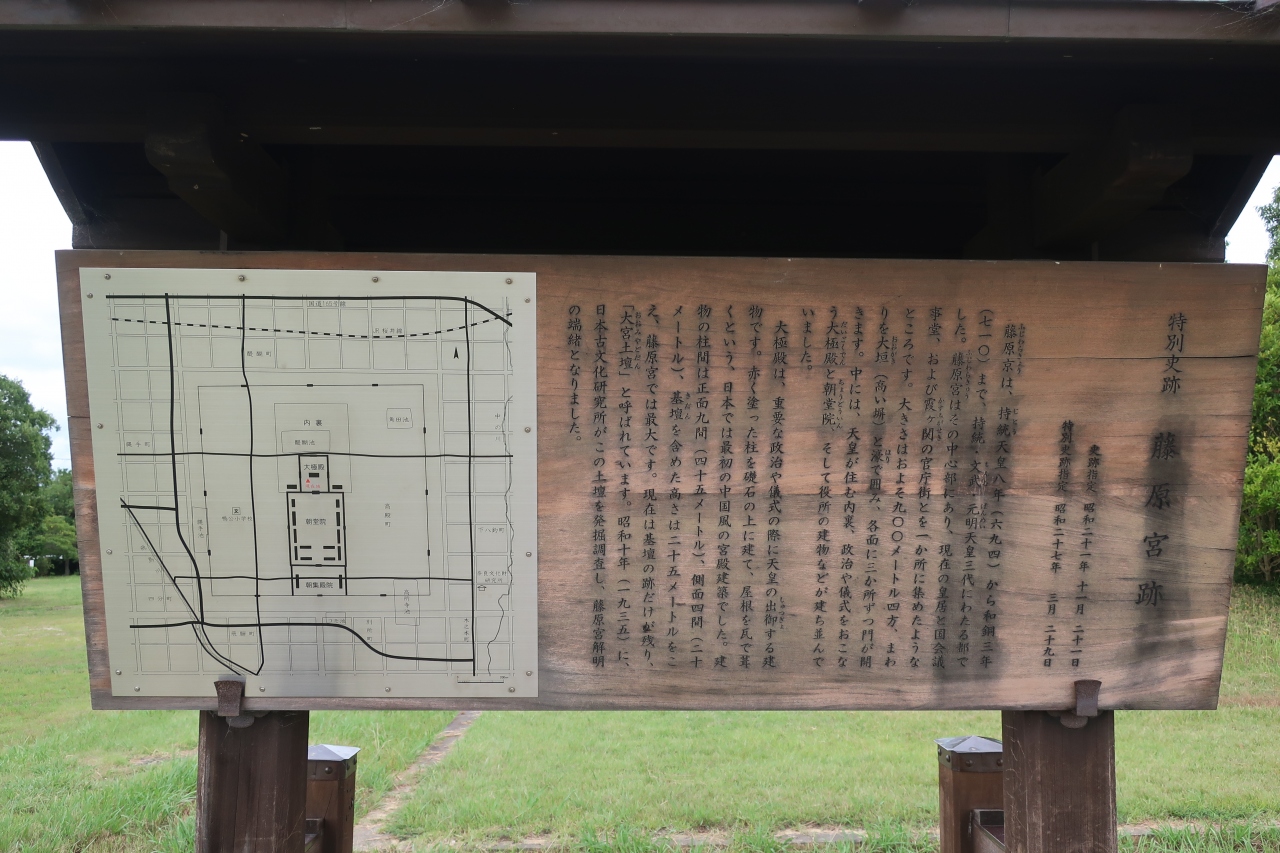 特別史跡
藤原宮跡
史跡指定 昭和二十一年 十一月 二十一日
特別史跡指定 昭和二十七年 三月 二十九日
藤原京は、持統天皇八年(六九四)から和銅三年
(七一〇)まで、持統・文武・元明天皇三代にわたる都で
した。藤原宮はその中心部にあり、現在の皇居と国会議
事堂、および霞ヶ関の官庁街とを一か所に集めたような
ところです。大きさはおよそ九〇〇メートル四方、まわ
りを大垣(高い塀)と濠で囲み、各面に三か所ずつ門が開
きます。中には、天皇が住む内裏、政治や儀式をおこな
う大極殿と朝堂院、そして役所の建物などが建ち並んで
いました。
大極殿は、重要な政治や儀式の際に天皇の出御する建
物です。赤く塗った柱を礎石の上に建て、屋根を瓦で葺
くという、日本では最初の中国風の宮殿建築でした。建
物の柱間は正面九間(四十五メートル)、側面四間(二十
メートル)、基壇を含めた高さは二十五メートルをこ
え、藤原宮では最大です。現在は基壇の跡だけが残り、
「大宮土壇」と呼ばれています。昭和十年(一九三五)に、
日本古文化研究所がこの土壇を発掘調査し、藤原宮解明
の端緒となりました。
国道165号線
JR桜井線
醍醐町
縄手町
内裏
醍醐池
大極殿
朝堂院
朝集殿院
高殿町
鴨公小学校
縄手池
下八釣町
奈良文化財
研究所
四分町
飛騨町
別所町
木之本町